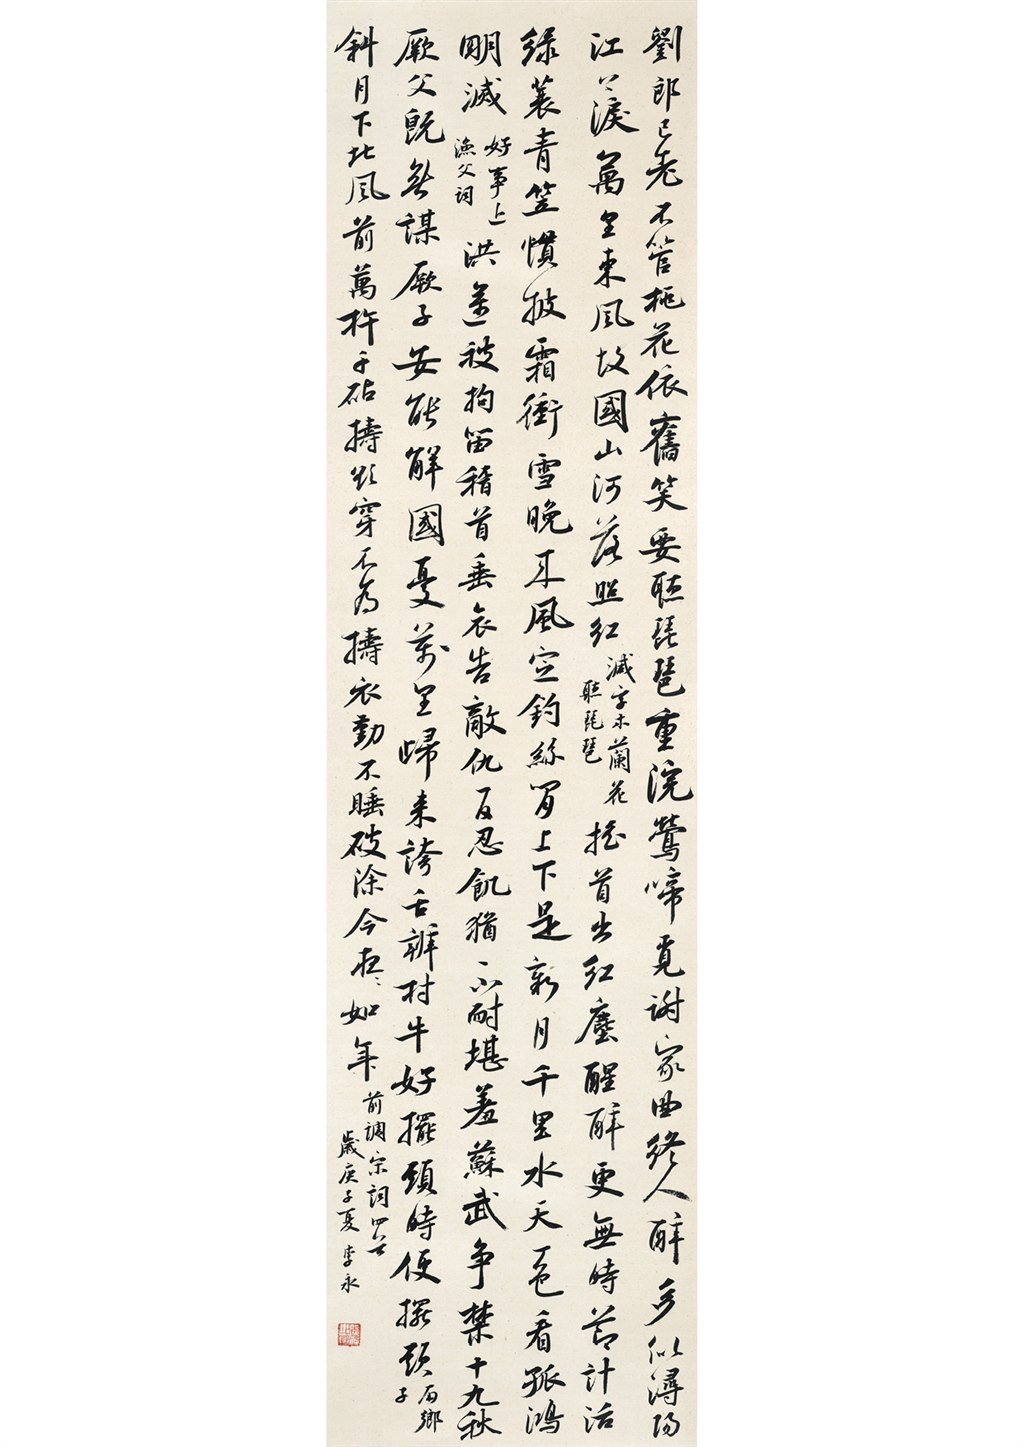 劉郎已老不管桃花依舊笑要聽琵琶重浣鶯啼覓謝家曲終人醉多似潯陽
江〻淚萬里東風故國山河落照紅
減字木蘭花
聽琵琶
搖首出紅塵醒醉更無時節計活
綠蓑青笠慣披霜衝雪晚來風定釣絲閒上下是新月千里水天一色看孤鴻
明滅
好事近
漁父詞
洪邁被拘留稽首垂哀告敵仇一日忍飢猶不耐堪羞蘇武爭禁十九秋
厥父既無謀厥子安能解國憂萬里歸來誇舌辨村牛好擺頭時便擺頭
南鄉
子
斜月下北風前萬杵千砧擣欲穿不為擣衣勤不睡破除今夜〻如年
前調宋詞四首
歲庚子夏李永